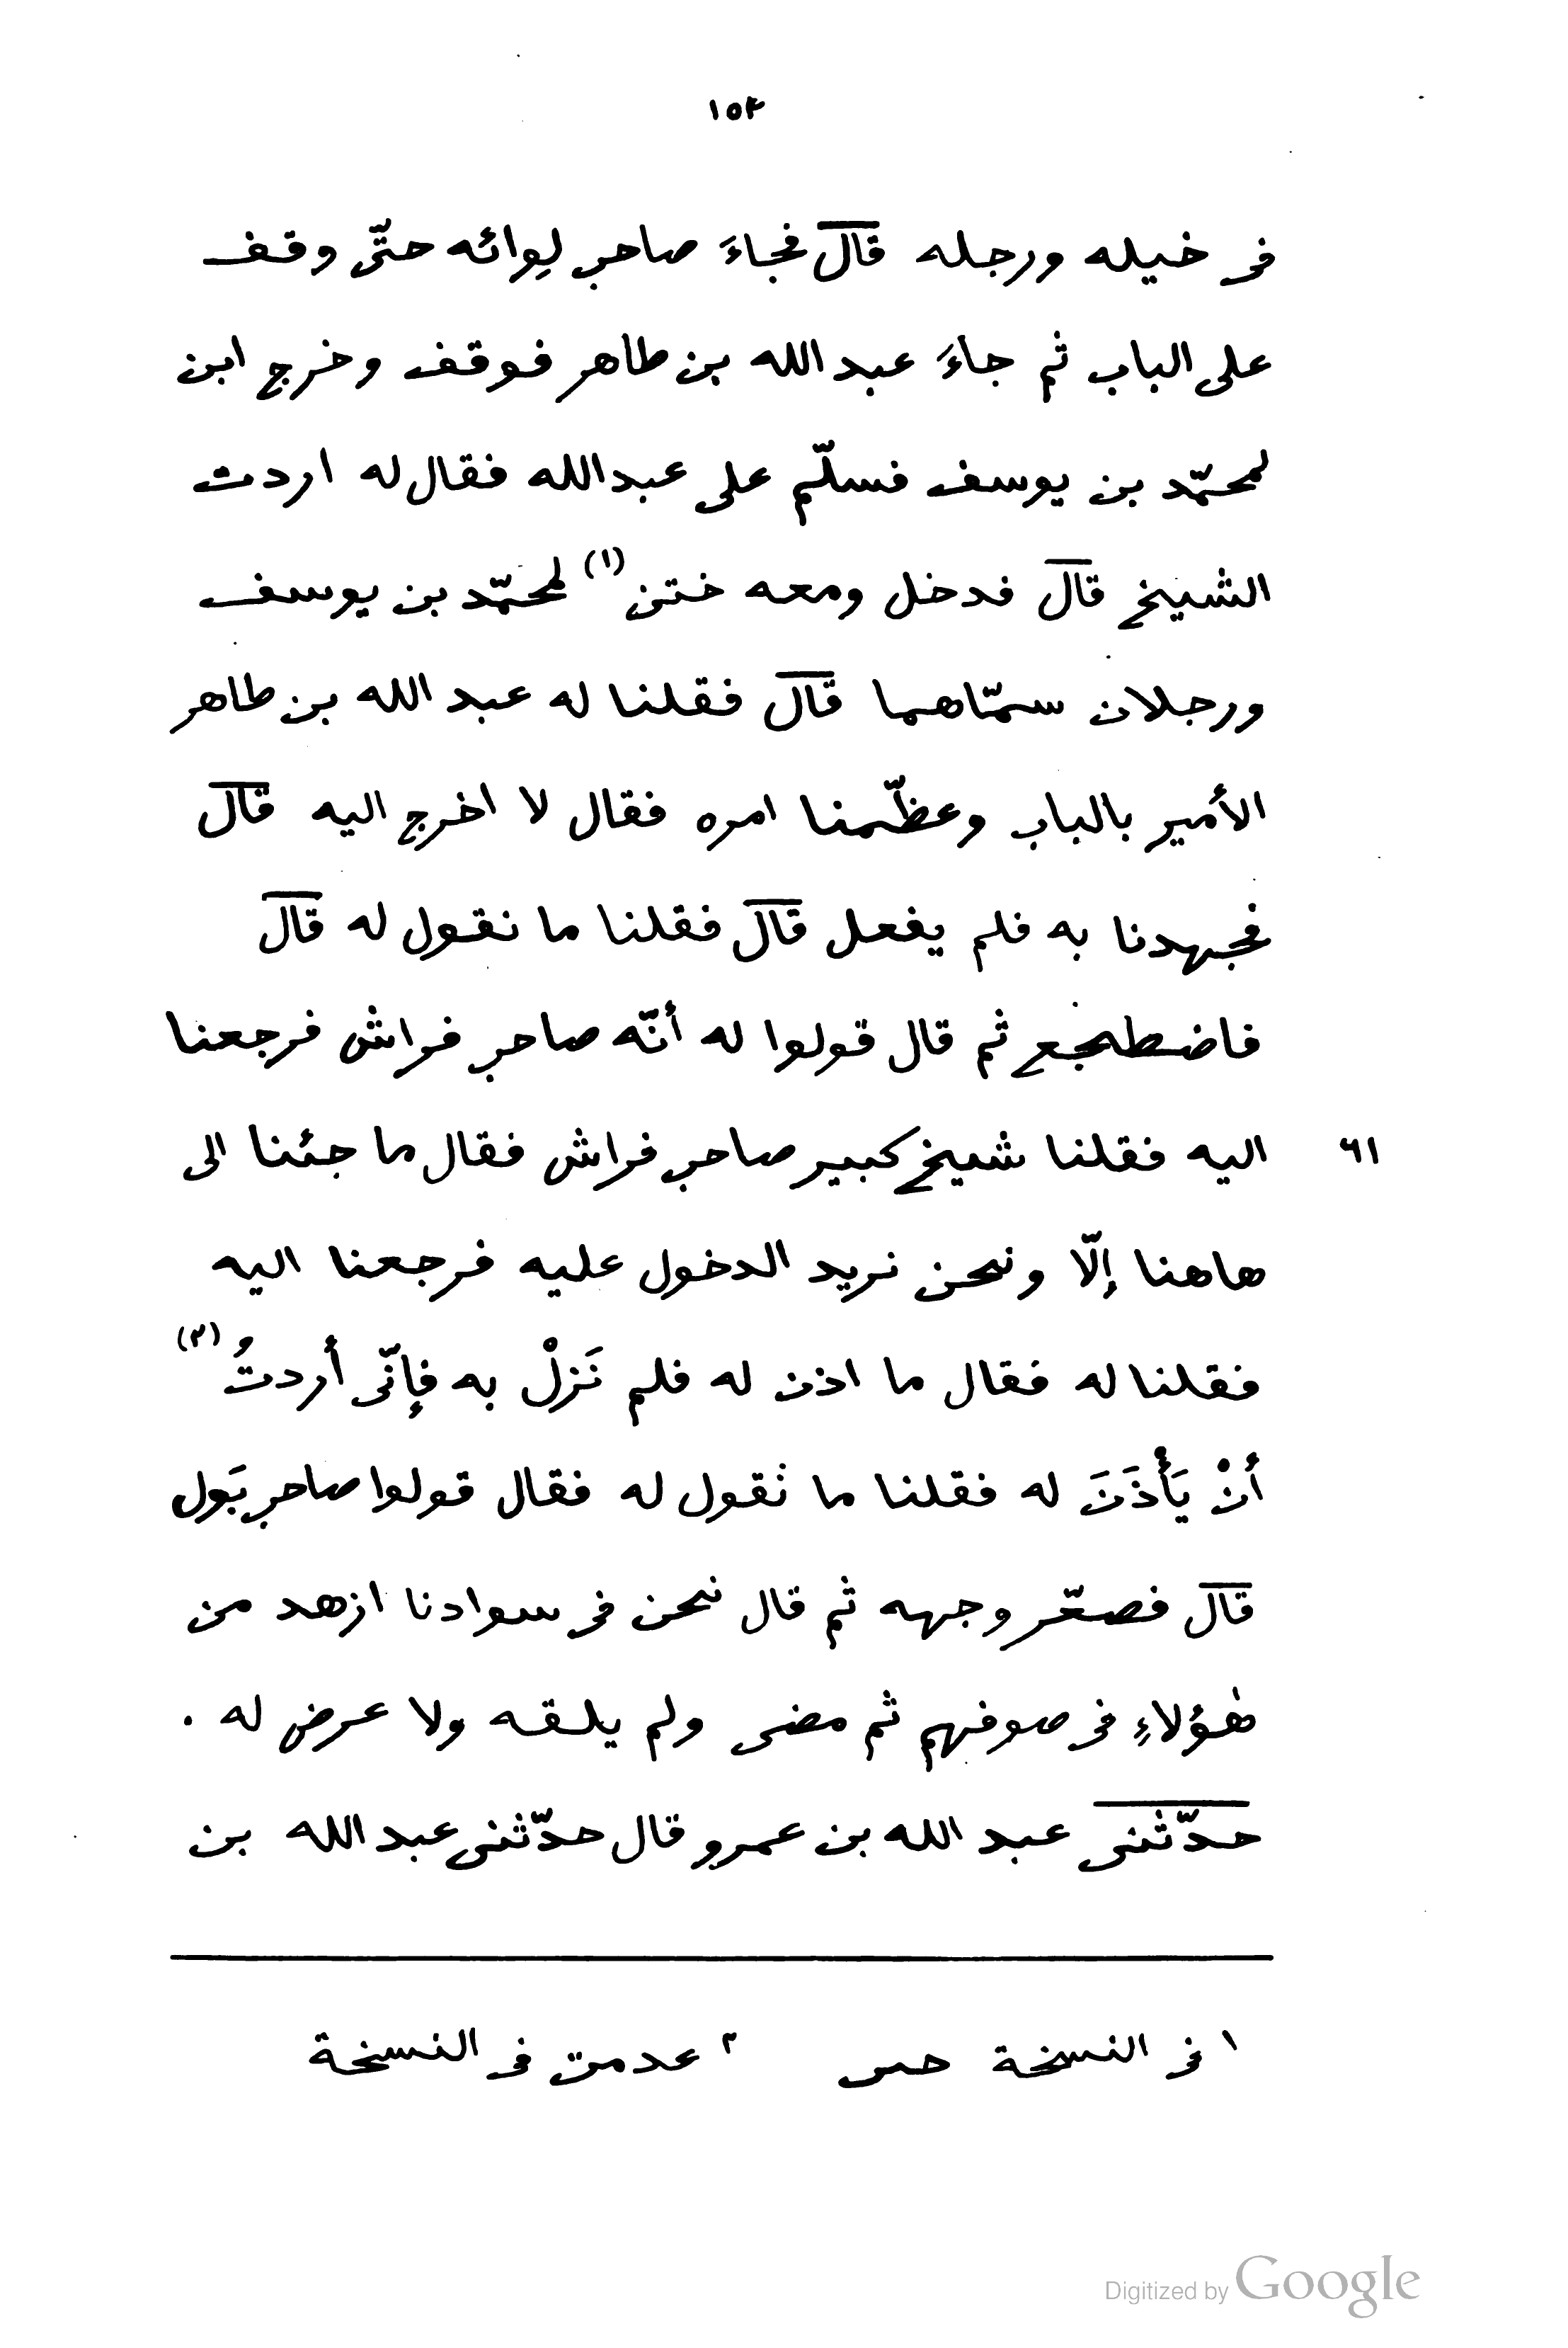 ١٥٢
فى خيله ورجله قال فجاءَ صاحب لِوائه حتّى وقف
على الباب ثم جاءَ عبد الله بن طاهر فوقف وخرج ابن
لمحمّد بن يوسف فسلّم على عبدالله فقال له اردت
الشيخ قال فدخل ومعه ختن (١) لمحمّد بن يوسف
ورجلان سمّاهما قال فقلنا له عبد الله بن طاهر
الأمير بالباب وعظّمنا امره فقال لا اخرج اليه قال
فجهدنا به فلم يفعل قال فقلنا ما نقول له قال
فاضطجع ثم قال قولوا له أنّه صاحب فراش فرجعنا
اليه فقلنا شيخ كبير صاحب فراش فقال ما جئنا الى ٦١
هاهنا إلّا ونحن نريد الدخول عليه فرجعنا اليه
فقلنا له فقال ما اذن له فلم نَزلْ به فإنّى أردتُ (٢)
أنْ يَأْذَنَ له فقلنا ما نقول له فقال قولوا صاحب بَول
قال فصعّر وجهه ثم قال نحن فى سوادنا ازهد من
هٰؤلاءِ فى صوفهم ثم مضى ولم يلقه ولا عرض له .
حدّثنى عبد الله بن عمرو قال حدّثنى عبد الله بن
١ فى النسخة حىں ٢ عدمت فى النسخة
Digitized by Google